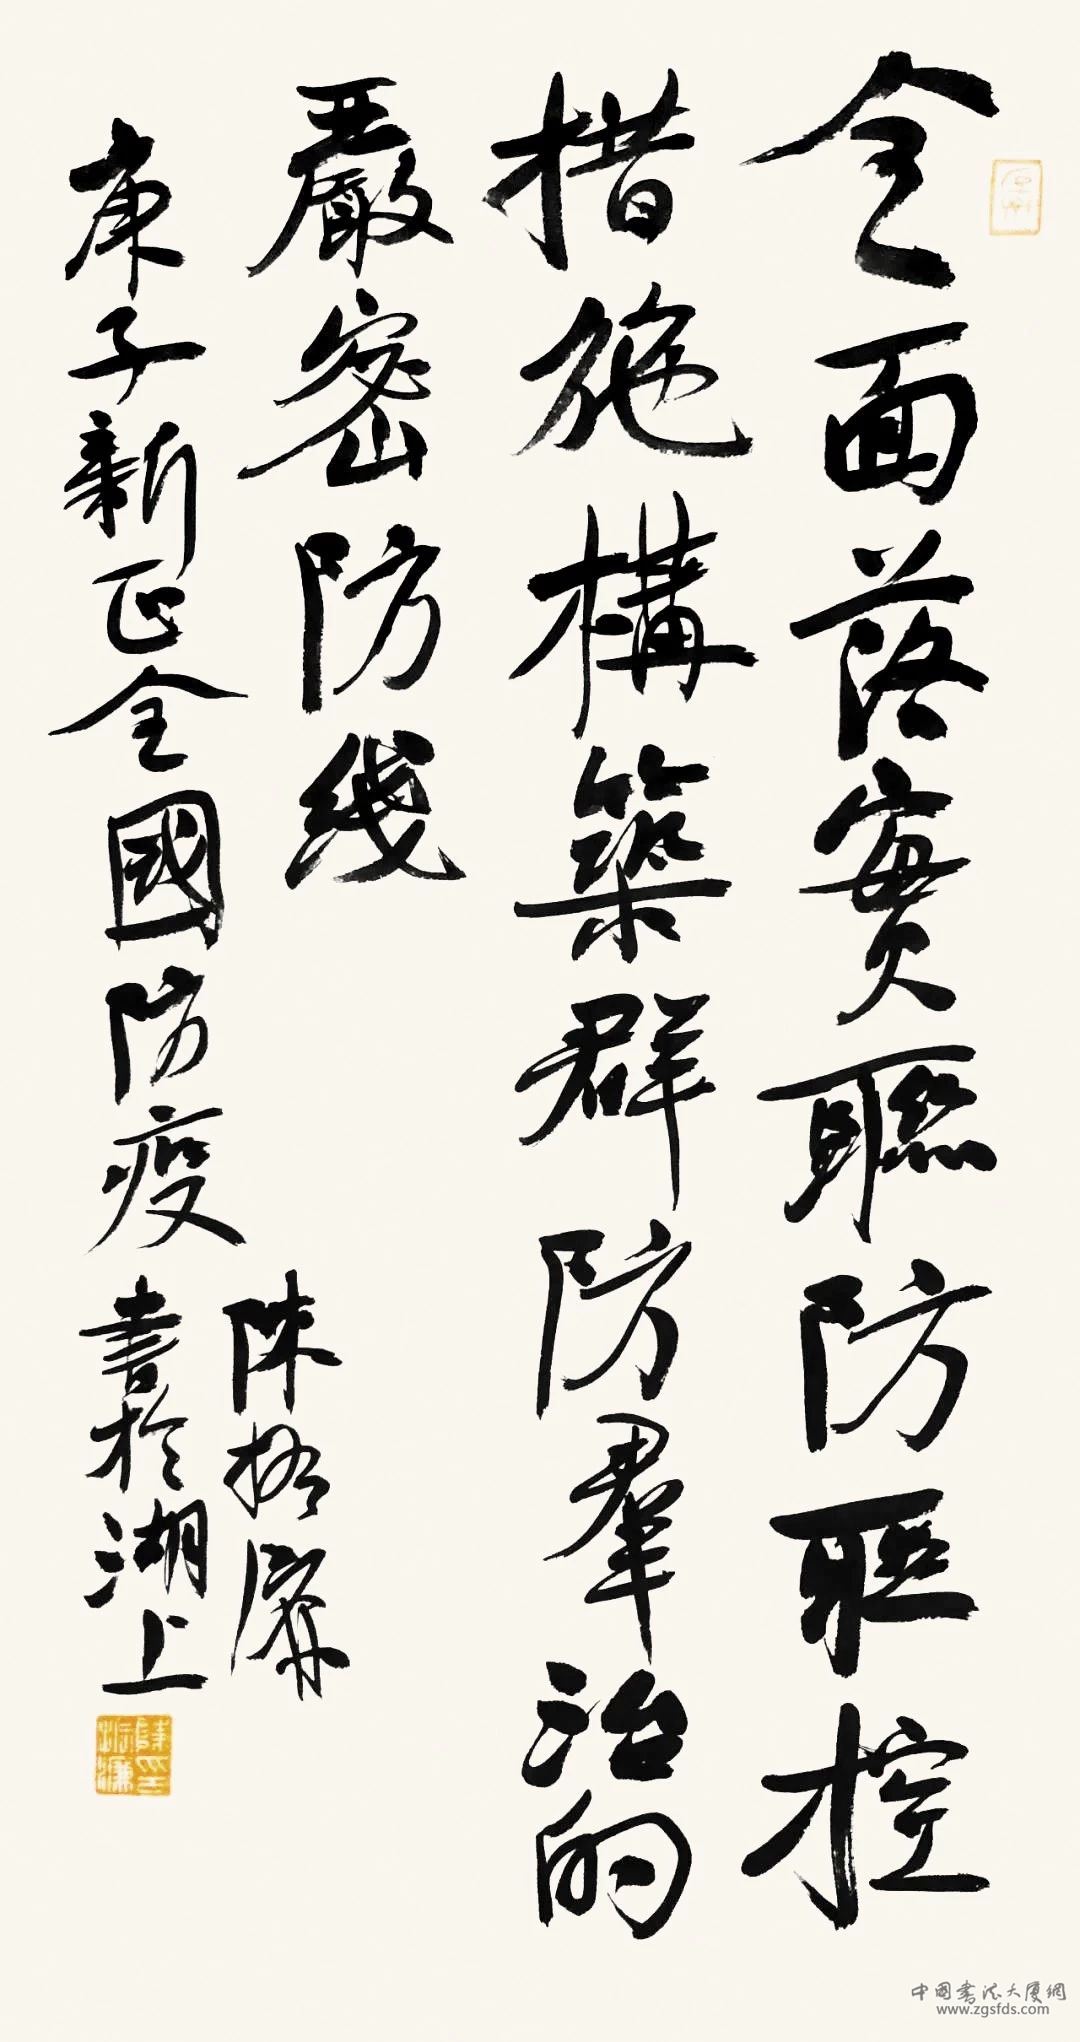 全面落實聯防聯控
措施構築群防羣治的
嚴密防线
庚子新正全國防疫
陳振濂
書於湖上
中国书法大厦網
www.zgsfds.com